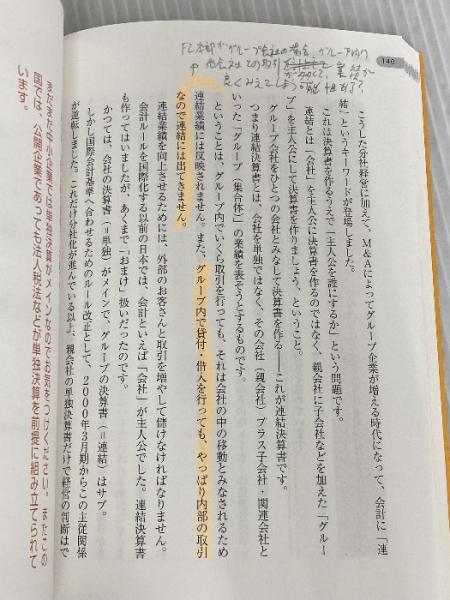 140
FC本部がグループ会社の場合、グループ内の
会社との取引
が多くて、業績が
良くみえてしまう可能性も有る?
こうした分社経営に加えて、M&Aによってグループ企業が増える時代になって、会計に「連
結」というキーワードが登場しました。
これは決算書を作るうえで「主人公を誰にするか」という問題です。
連結とは「会社」を主人公に決算書を作るのではなく、親会社に子会社などを加えた「グルー
プ」を主人公にして決算書を作りましょう、ということ。
グループ会社をひとつの会社とみなして決算書を作る——これが連結決算書です。
つまり連結決算書とは、会社を単独ではなく、その会社（親会社）プラス子会社・関連会社と
いった「グループ（集合体）」の業績を表そうとするものです。
ということは、グループ内でいくら取引を行っても、それは会社の中の移動とみなされるため
連結業績には反映されません。また、グループ内で貸付・借入を行っても、やっぱり内部の取引
なので連結には出てきません。
連結業績を向上させるためには、外部のお客さんと取引を増やして儲けなければなりません。
会計ルールを国際化する以前の日本では、会計といえば「会社」が主人公でした。連結決算書
も作ってはいましたが、あくまで「おまけ」扱いだったのです。
かつては、会社の決算書（＝単独）がメインで、グループの決算書（＝連結）はサブ。
しかし国際会計基準へ合わせるためのルール改正として、2000年3月期からこの主従関係
が逆転しました。これだけ分社化が進んでいる以上、親会社の単独決算書だけで経営の判断はで
まだまだ中小企業では単独決算がメインなのでお気をつけください。またこの
国では、公開企業であっても法人税法などが単独決算を前提に組み立てられて
います。